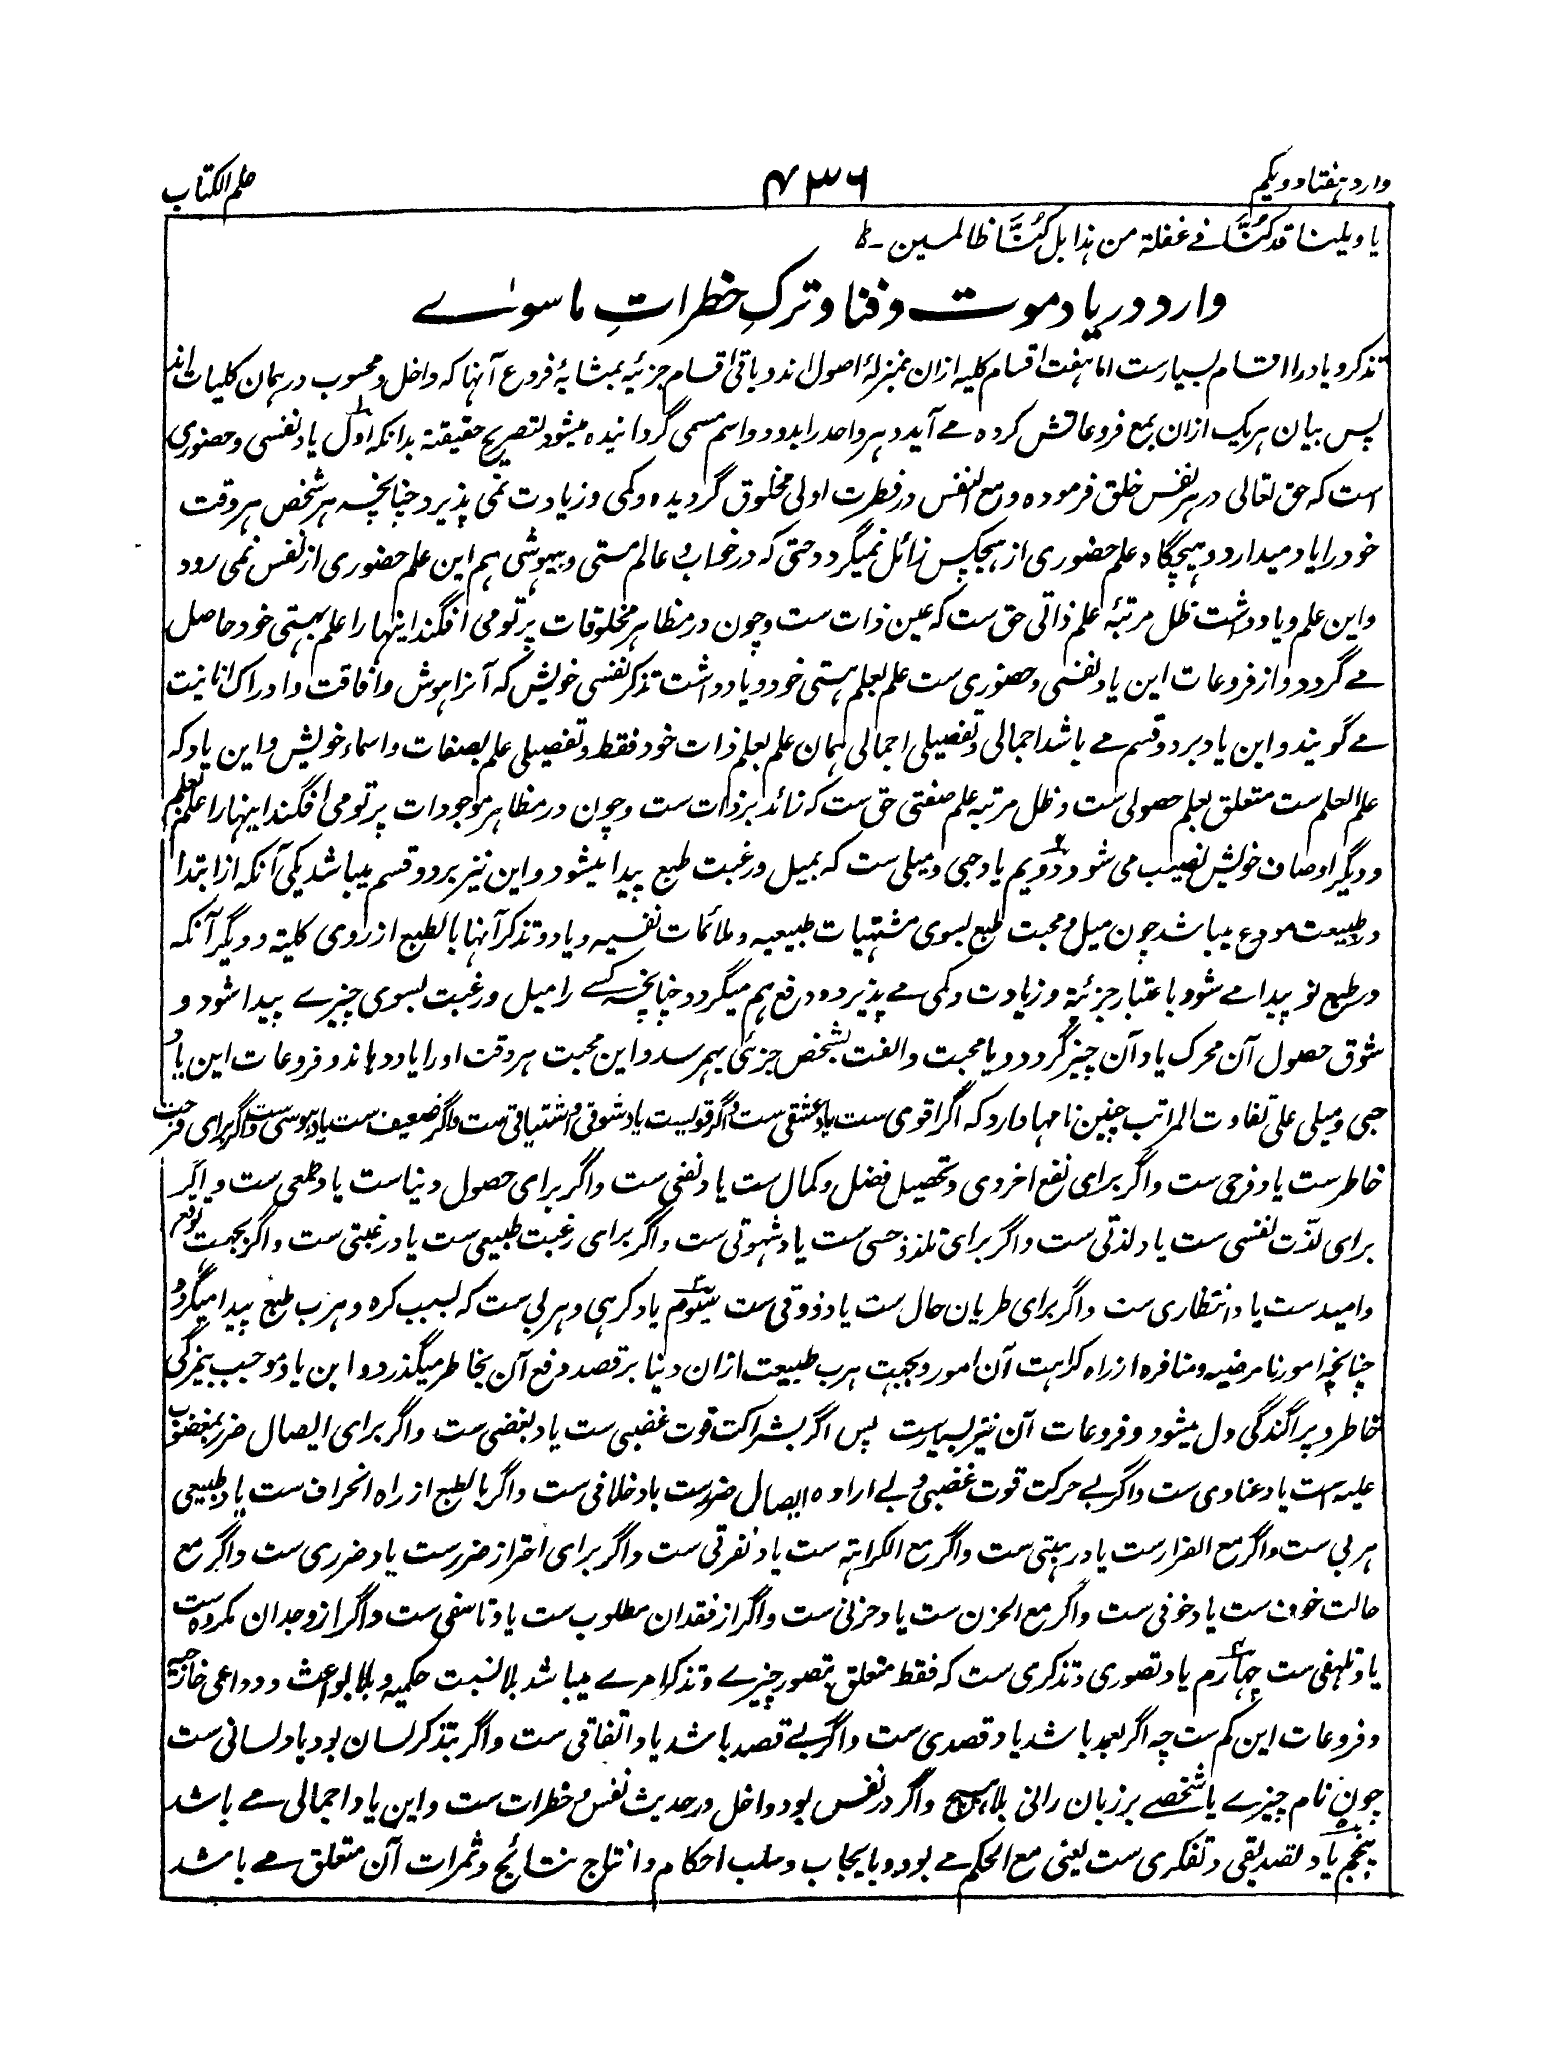 وارد ہفتاد و یکم
۴۳۶
علم الکتاب
یا ویلنا قد کُنَّا فے غفلة من ہذا بل کُنَّا ظالمین -ط
وارد در یاد موت و فنا و ترکِ خطراتِ ما سوے
تذکر و یاد را اقسام بسیارست اما ہفت اقسام کلیہ ازان بمنزلۂ اصول اند و باقی اقسام جزئیہ بمثابۂ فروع آنہا کہ داخل و محسوب در ہمان کلیات اند
پس بیان ہریک ازان بمع فروعاتش کردہ مے آید و ہر واحد را بدو دو اسم مسمی گردانیدہ میشود لتصریح حقیقتہ بدانکہ اول یاد نفسی و حضوری
است کہ حق تعالی در ہر نفس خلق فرمودہ و مع النفس در فطرت اولی مخلوق گردیدہ و کمی و زیادت نمی پذیرد چنانچہ ہر شخص ہر وقت
خود را یاد میدارد و ہیچگاہ علم حضوری از ہیچکس زائل نمیگردد حتی کہ در خواب و عالم مستی و بیہوشی ہم این علم حضوری از نفس نمی رود
و این علم و یادداشت ظل مرتبۂ علم ذاتی حق ست کہ عین ذات ست و چون در مظاہر مخلوقات پرتو می افگند اینہا را علم بہستی خود حاصل
مے گردد و از فروعات این یاد نفسی و حضوری ست علم لعلم ہستی خود و یادداشت تذکر نفسی خویش کہ آنرا ہوش و افاقت و ادراک انانیت
مے گویند و این یاد بر دو قسم مے باشد اجمالی و تفصیلی اجمالی ہمان علم بعلم ذات خود فقط و تفصیلی علم بصفات و اسماء خویش و این یاد کہ
علم العلم ست متعلق بعلم حصولی ست و ظل مرتبہ علم صفتی حق ست کہ زائد بر ذات ست و چون در مظاہر موجودات پرتو می افگند اینہا را علم بعلم
و دیگر اوصاف خویش نصیب می شود دویم یاد حبی و میلی ست کہ بمیل و رغبت طبع پیدا میشود و این نیز بر دو قسم میباشد یکی آنکہ از ابتدا
در طبیعت مودع میباشد چون میل و محبت طبع بسوی مشتہیات طبیعیہ و ملائمات نفسیہ و یاد و تذکر آنہا بالطبع از روی کلیتہ و دیگر آنکہ
در طبع نو پیدا مے شود باعتبار جزئیۃ و زیادت و کمی مے پذیرد و رفع ہم میگردد چنانچہ کسے را میل و رغبت بسوی چیزے پیدا شود و
شوق حصول آن محرک یاد آن چیز گردد و یا محبت و الفت بشخص جزئی بہم رسد و این محبت ہر وقت او را یاد دہاند و فروعات این یاد
حبی و میلی علی تفاوت المراتب چنین نامہا دارد کہ اگر اقوی ست یاد عشقی ست و اگر قویست یاد شوقی و اشتیاقی ست و اگر ضعیف ست یاد ہوسی ست و اگر برای فرحت
خاطرست یاد فرحی ست و اگر برای نفع اخروی و تحصیل فضل و کمال ست یاد نفعی ست و اگر برای حصول دنیاست یاد طمعی ست و اگر
برای لذّت نفسی ست یاد لذتی ست و اگر برای تلذذ حسی ست یاد شہوتی ست و اگر برای رغبت طبیعی ست یاد رغبتی ست و اگر بجہت توقع
و امیدست یاد انتظاری ست و اگر برای طریان حال ست یاد ذوقی ست سیوم یاد کرہی و ہربی ست کہ بسبب کرہ و ہرب طبع پیدا میگردد
چنانچہ امور نامرضیہ و منافرہ از راہ کراہت آن امور و بجہت ہرب طبیعت ازان و بنا بر قصد دفع آن بخاطر میگذرد و این یاد موجب بیمزگی
خاطر و پراگندگی دل میشود و فروعات آن نیز بسیارست پس اگر بشراکت قوت غضبی ست یاد بغضی ست و اگر برای ایصال ضرر بمغضوب
علیہ ست یاد عنادی ست و اگر بے حرکت قوت غضبی و بے ارادہ ایصال ضررست یاد خلافی ست و اگر بالطبع از راہ انحراف ست یاد طبیعی
ہربی ست و اگر مع الفرارست یاد رہبتی ست و اگر مع الکراہتہ ست یاد نفرتی ست و اگر برای احتراز ضررست یاد ضرری ست و اگر مع
حالت خوف ست یاد خوفی ست و اگر مع الحزن ست یاد حزنی ست و اگر از فقدان مطلوب ست یاد تاسفی ست و اگر از وجدان مکروہ ست
یاد تلہفی ست چہارم یاد تصوری و تذکری ست کہ فقط متعلق بتصور چیزے و تذکر امرے میباشد بلا نسبت حکمیہ و بلا بواعث و دواعی خارجیہ
و فروعات این کم ست چہ اگر بعمد باشد یاد قصدی ست و اگر بے قصد باشد یاد اتفاقی ست و اگر بتذکر لسان بود یاد لسانی ست
چون نام چیزے یا شخصے بر زبان رانی بلا و اگر در نفس بود داخل در حدیث نفس و خطرات ست و این یاد اجمالی مے باشد
پنجم یاد تصدیقی و تفکری ست یعنی مع الحکم مے بود و بایجاب و سلب احکام و انتاج نتائج و ثمرات آن متعلق مے باشد